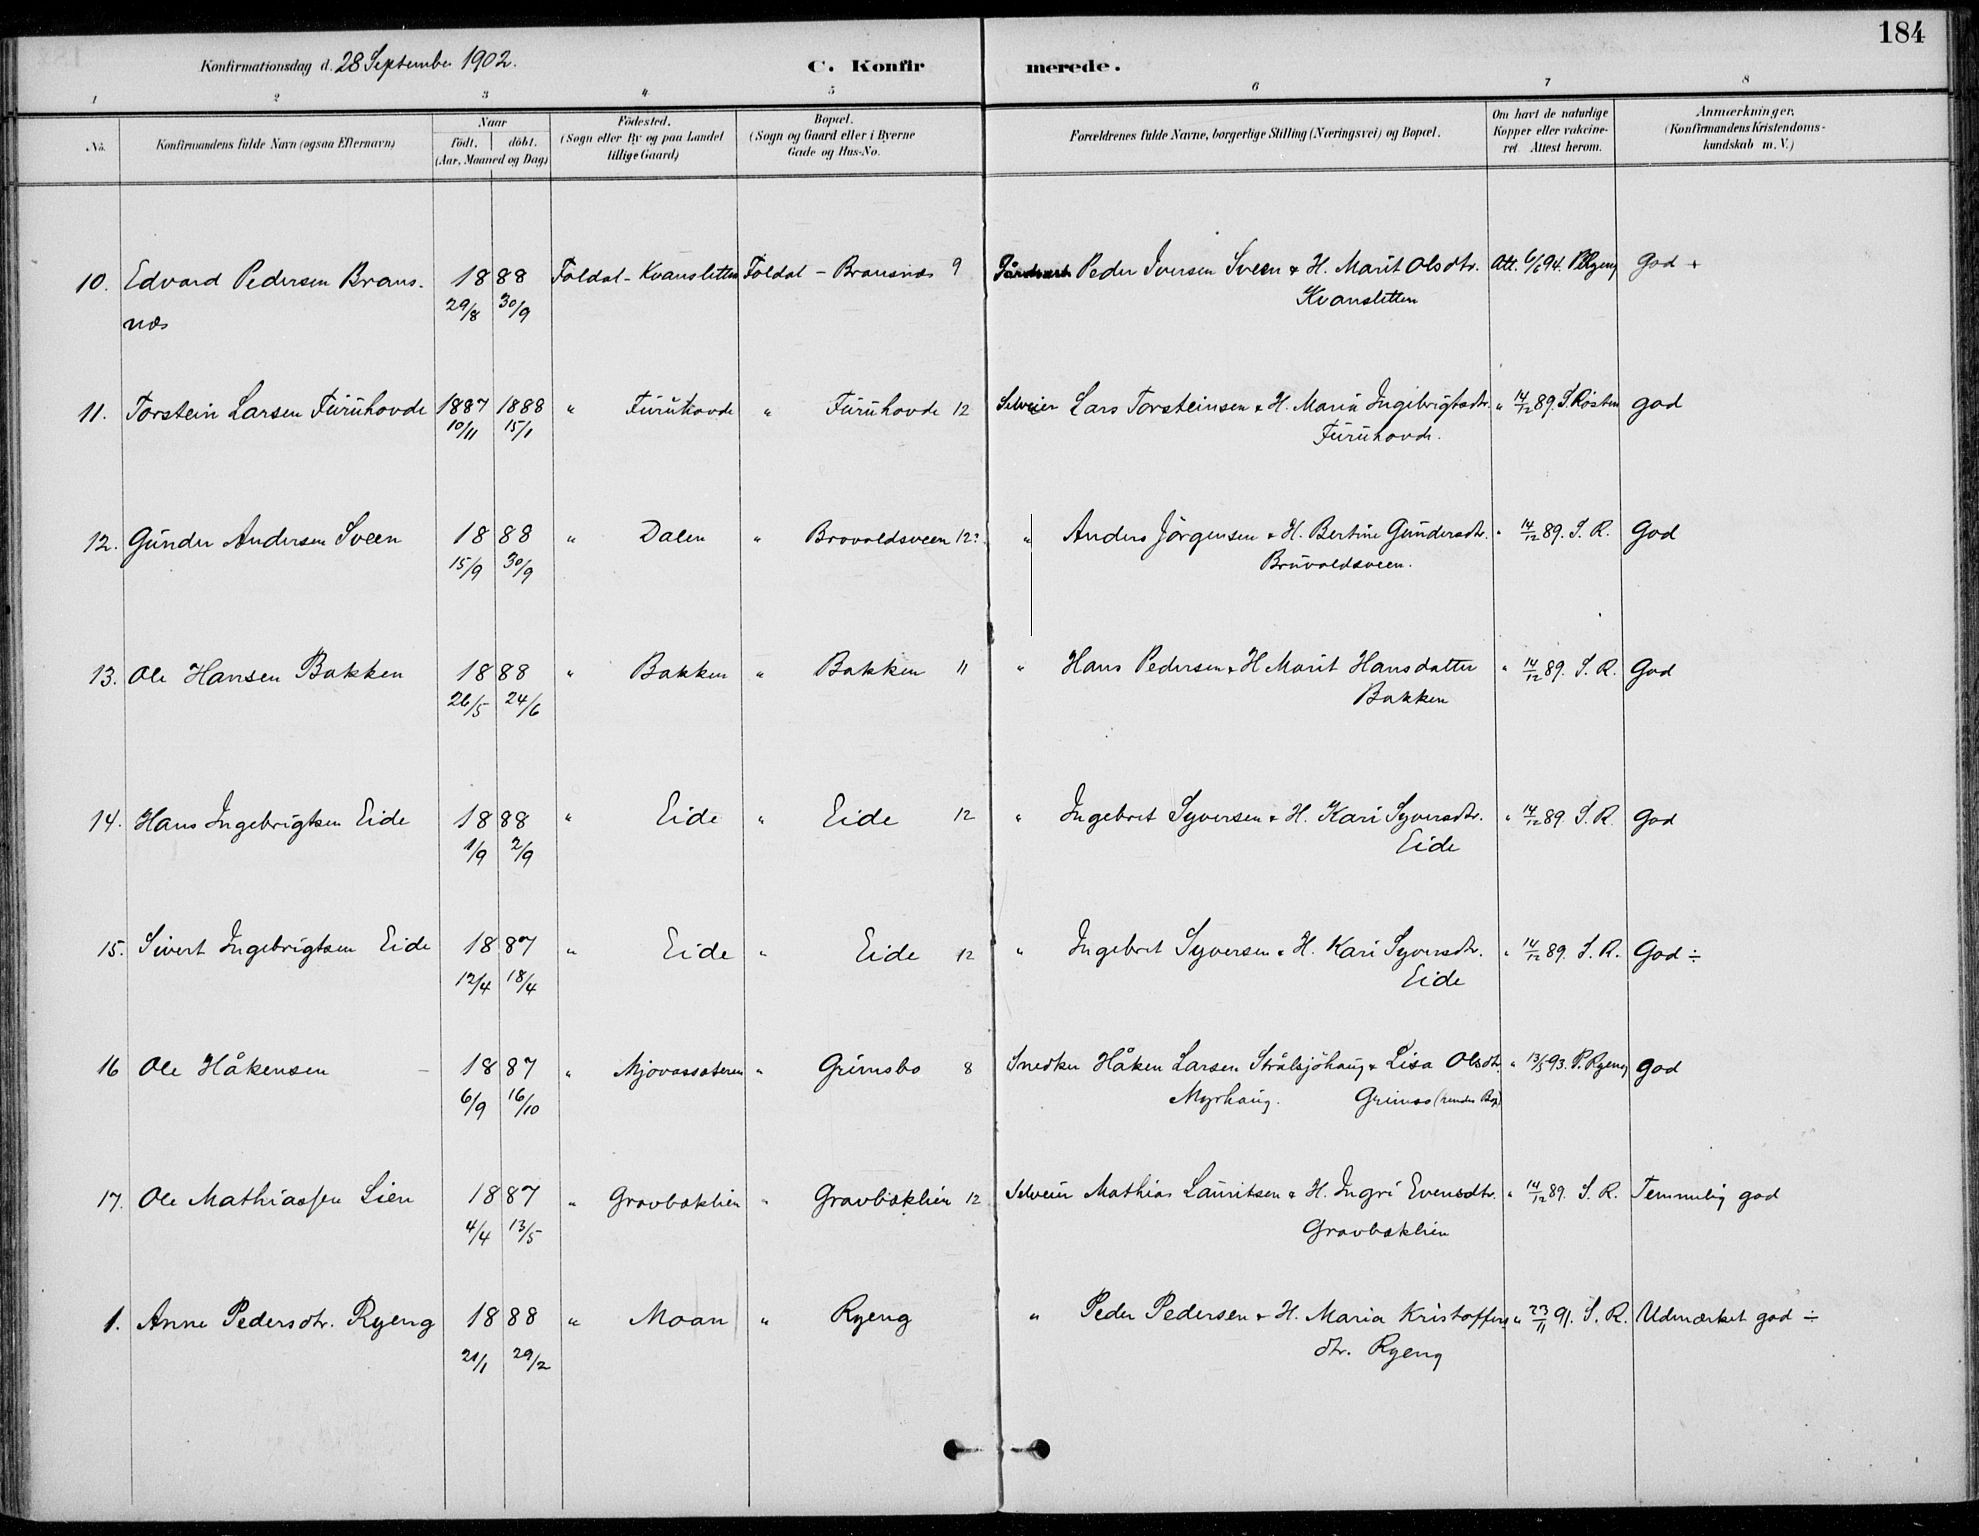 184
Konfirmationsdag d. 28 September 1902. C. Konfirmerede.
1 2 3 4 5 6 7 8
No. Konfirmandens fulde Navn (ogsaa Efternavn) Naar Födested. Bopæl. Forældrenes fulde Navne, borgerlige Stilling (Næringsvei) og Bopæl. Om havt de naturlige Anmærkninger.
födt. döbt. (Sogn eller By og paa Landet (Sogn og Gaard eller i Byerne Kopper eller vakcine- (Konfirmandens Kristendoms-
(Aar, Maaned og Dag) tillige Gaard) Gade og Hus-No. ret. Attest herom. kundskab m. V.)
10. Edvard Pedersen Brans- 18 88 Foldal - Kvansletten Foldal - Bransnæs 9 Peder Iversen Sveen & H. Marit Olsdtr. Att. 6/6 94. P. Ryeng God +
næs 29/8 30/9 Kvansletten
11. Torstein Larsen Furuhovde 1887 1888 " Furuhovde " Furuhovde 12 Selveier Lars Torsteinsen & H. Maria Ingebrigtsdtr. " 14/12 89. S. Rosten god
10/11 15/1 Furuhovde.
12. Gunder Andersen Sveen 18 88 " Dalen " Brovoldsveen 12? " Anders Jörgensen & H. Bertine Gundersdtr. " 14/12 89. S. R. God
15/9 30/9 Bruvoldsveen.
13. Ole Hansen Bakken 18 88 " Bakken " Bakken 11 " Hans Pedersen & H Marit Hansdatter " 14/12 89. S. R. God
26/5 24/6 Bakken
14. Hans Ingebrigtsen Eide 18 88 " Eide " Eide 12 " Ingebret Syversen & H. Kari Syversdtr. " 14/12 89. S. R. God
1/9 2/9 Eide
15. Sivert Ingebrigtsen Eide 18 87 " Eide " Eide 12 " Ingebret Syversen & H. Kari Syversdtr. " 14/12 89. S. R. God ÷
12/4 18/4 Eide
16 Ole Håkensen - 18 87 " Mjovassæteren " Grimsbo 8 Snedker Håken Larsen Strålsjöhaug & Lisa Olsdtr. " 13/5 93. P. Ryeng God
6/9 16/10 Myrhaug. Grimso (hendes Bop)
17. Ole Mathiassen Lien 18 87 " Gravbæklien " Gravbæklien 12 Selveier Mathias Lauritsen & H. Ingri Evensdtr. " 14/12 89. S. R. Temmelig god
4/4 13/5 Gravbæklien
1. Anne Pedersdtr. Ryeng 18 88 " Moan " Ryeng " Peder Pedersen & H. Maria Kristoffers " 23/11 91. S. R. Udmærket god ÷
21/1 29/2 dtr. Ryeng